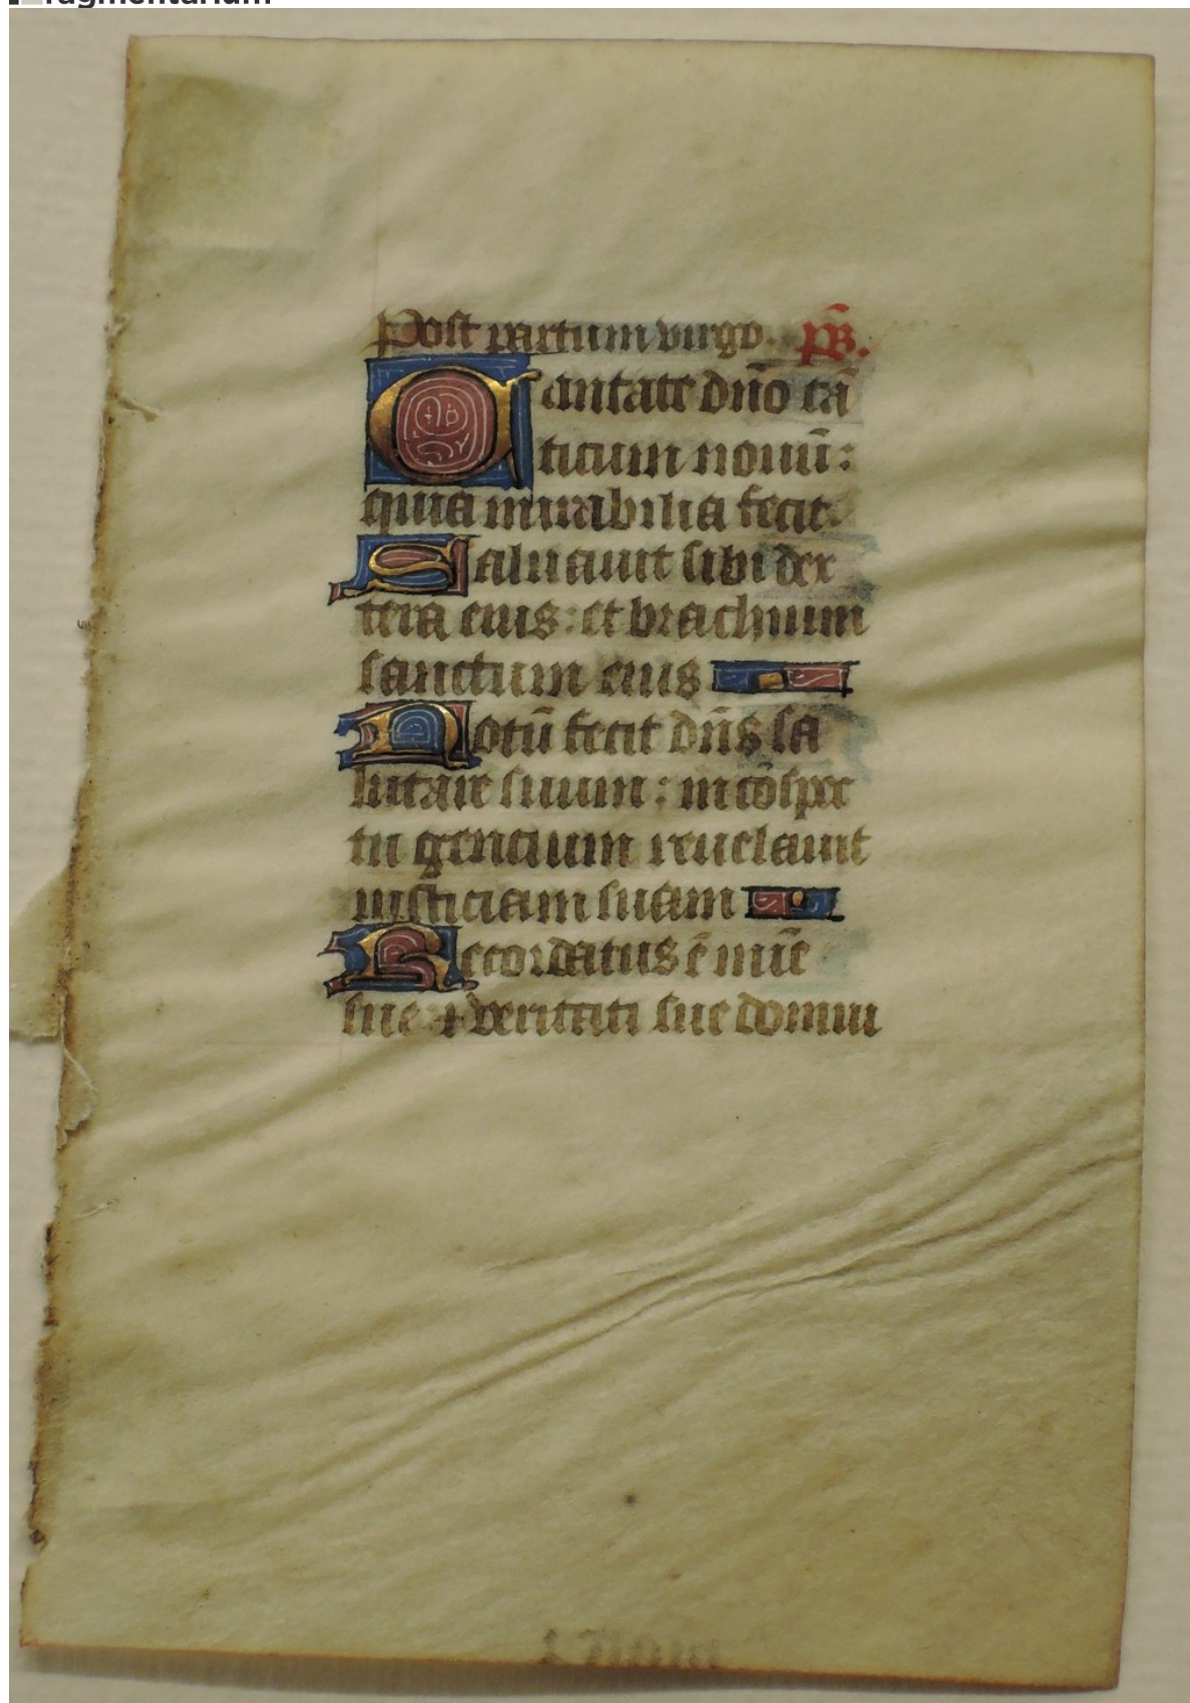 Fragmentarium
Post partum virgo. ps̄.
Cantate dn̄o cā
ticum nouū:
quia mirabilia fecit.
Saluauit sibi dex
tera eius: et brachium
sanctum eius
Notū fecit dn̄s sa
lutare suum: in cōspec
tu gencium reuelauit
iusticiam suam
Recordatus ē mīe
sue ⁊ veritati sue domui